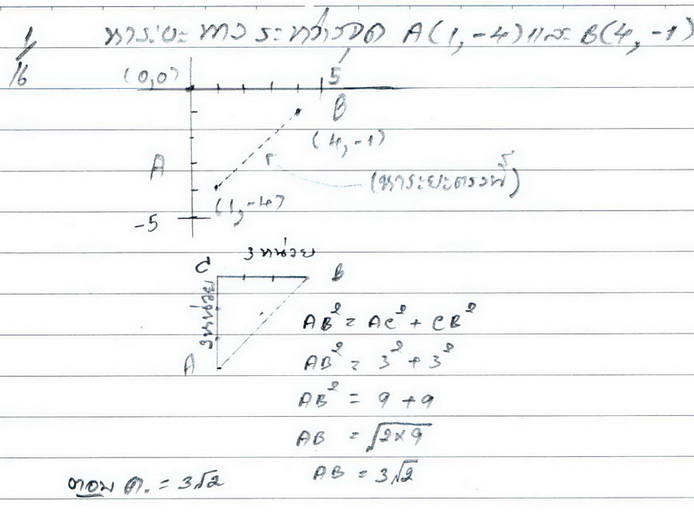 1/16 หาระยะทางระหว่างจุด A(1,-4) และ B(4,-1)
(0,0) 5
B
(4,-1)
A r
(หาระยะตรงนี้)
(1,-4)
-5
3 หน่วย
C B
3 หน่วย
AB² = AC² + CB²
A
AB² = 3² + 3²
AB² = 9 + 9
AB = √2×9
AB = 3√2
ตอบ ค. = 3√2